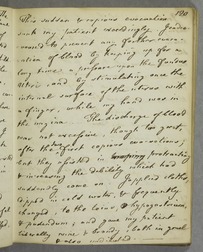 This sudden & copious evacuation
sunk my patient exceedingly. I ende
vored to prevent any farther evacu
ation of blood by keeping up for a
long time a pressure upon the fundus
uteri and by stimulating once the
internal surface of the uterus with
a finger, while my hand was in
the vagina. The discharge of blood
was not excessive, though great,
after the first copious evacuations;
but they assisted in prostrating
& increasing the debility which had so
suddenly come on. I applied cloths
dipped in cold water, & frequently
changed, to the loins, & hypogastrium,
& pudendum; and gave my patient
brandy, both in small